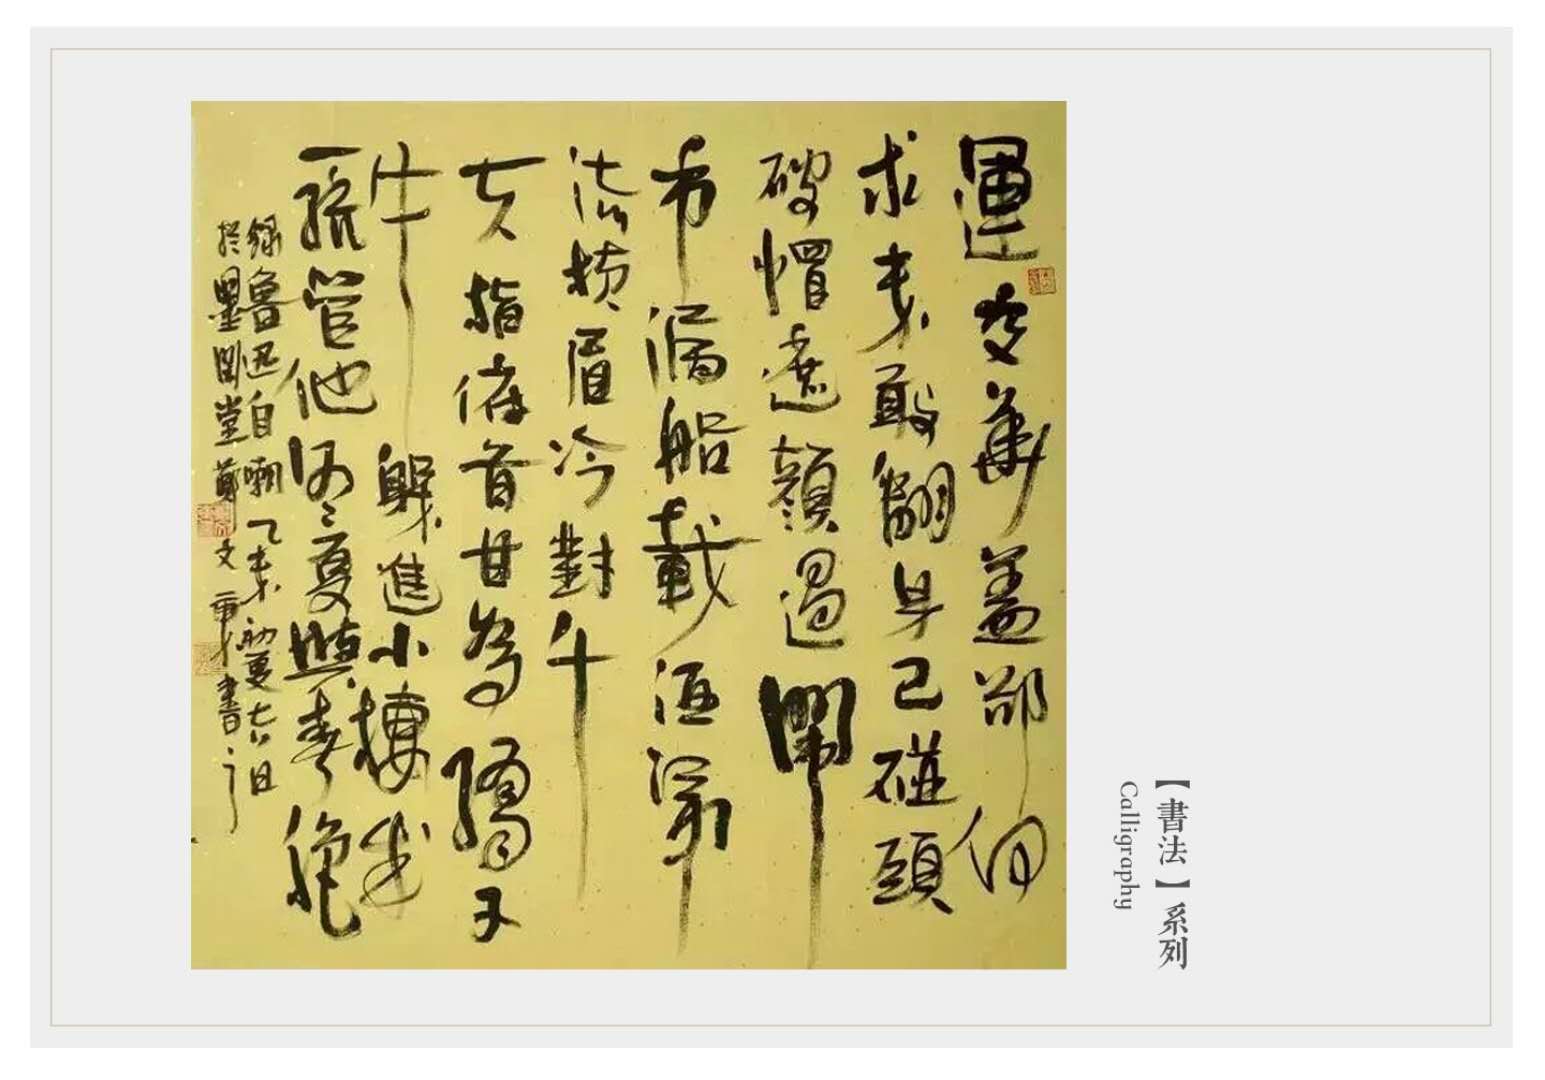 運交華蓋欲何
求未敢翻身已碰頭
破帽遮顏過鬧
市漏船載酒泛中
流橫眉冷對千
夫指俯首甘為孺子
牛躲進小樓成
一統管他冬夏與春秋
錄魯迅自嘲乙未初夏
於墨堂鄭文書
【書法】系列
Calligraphy